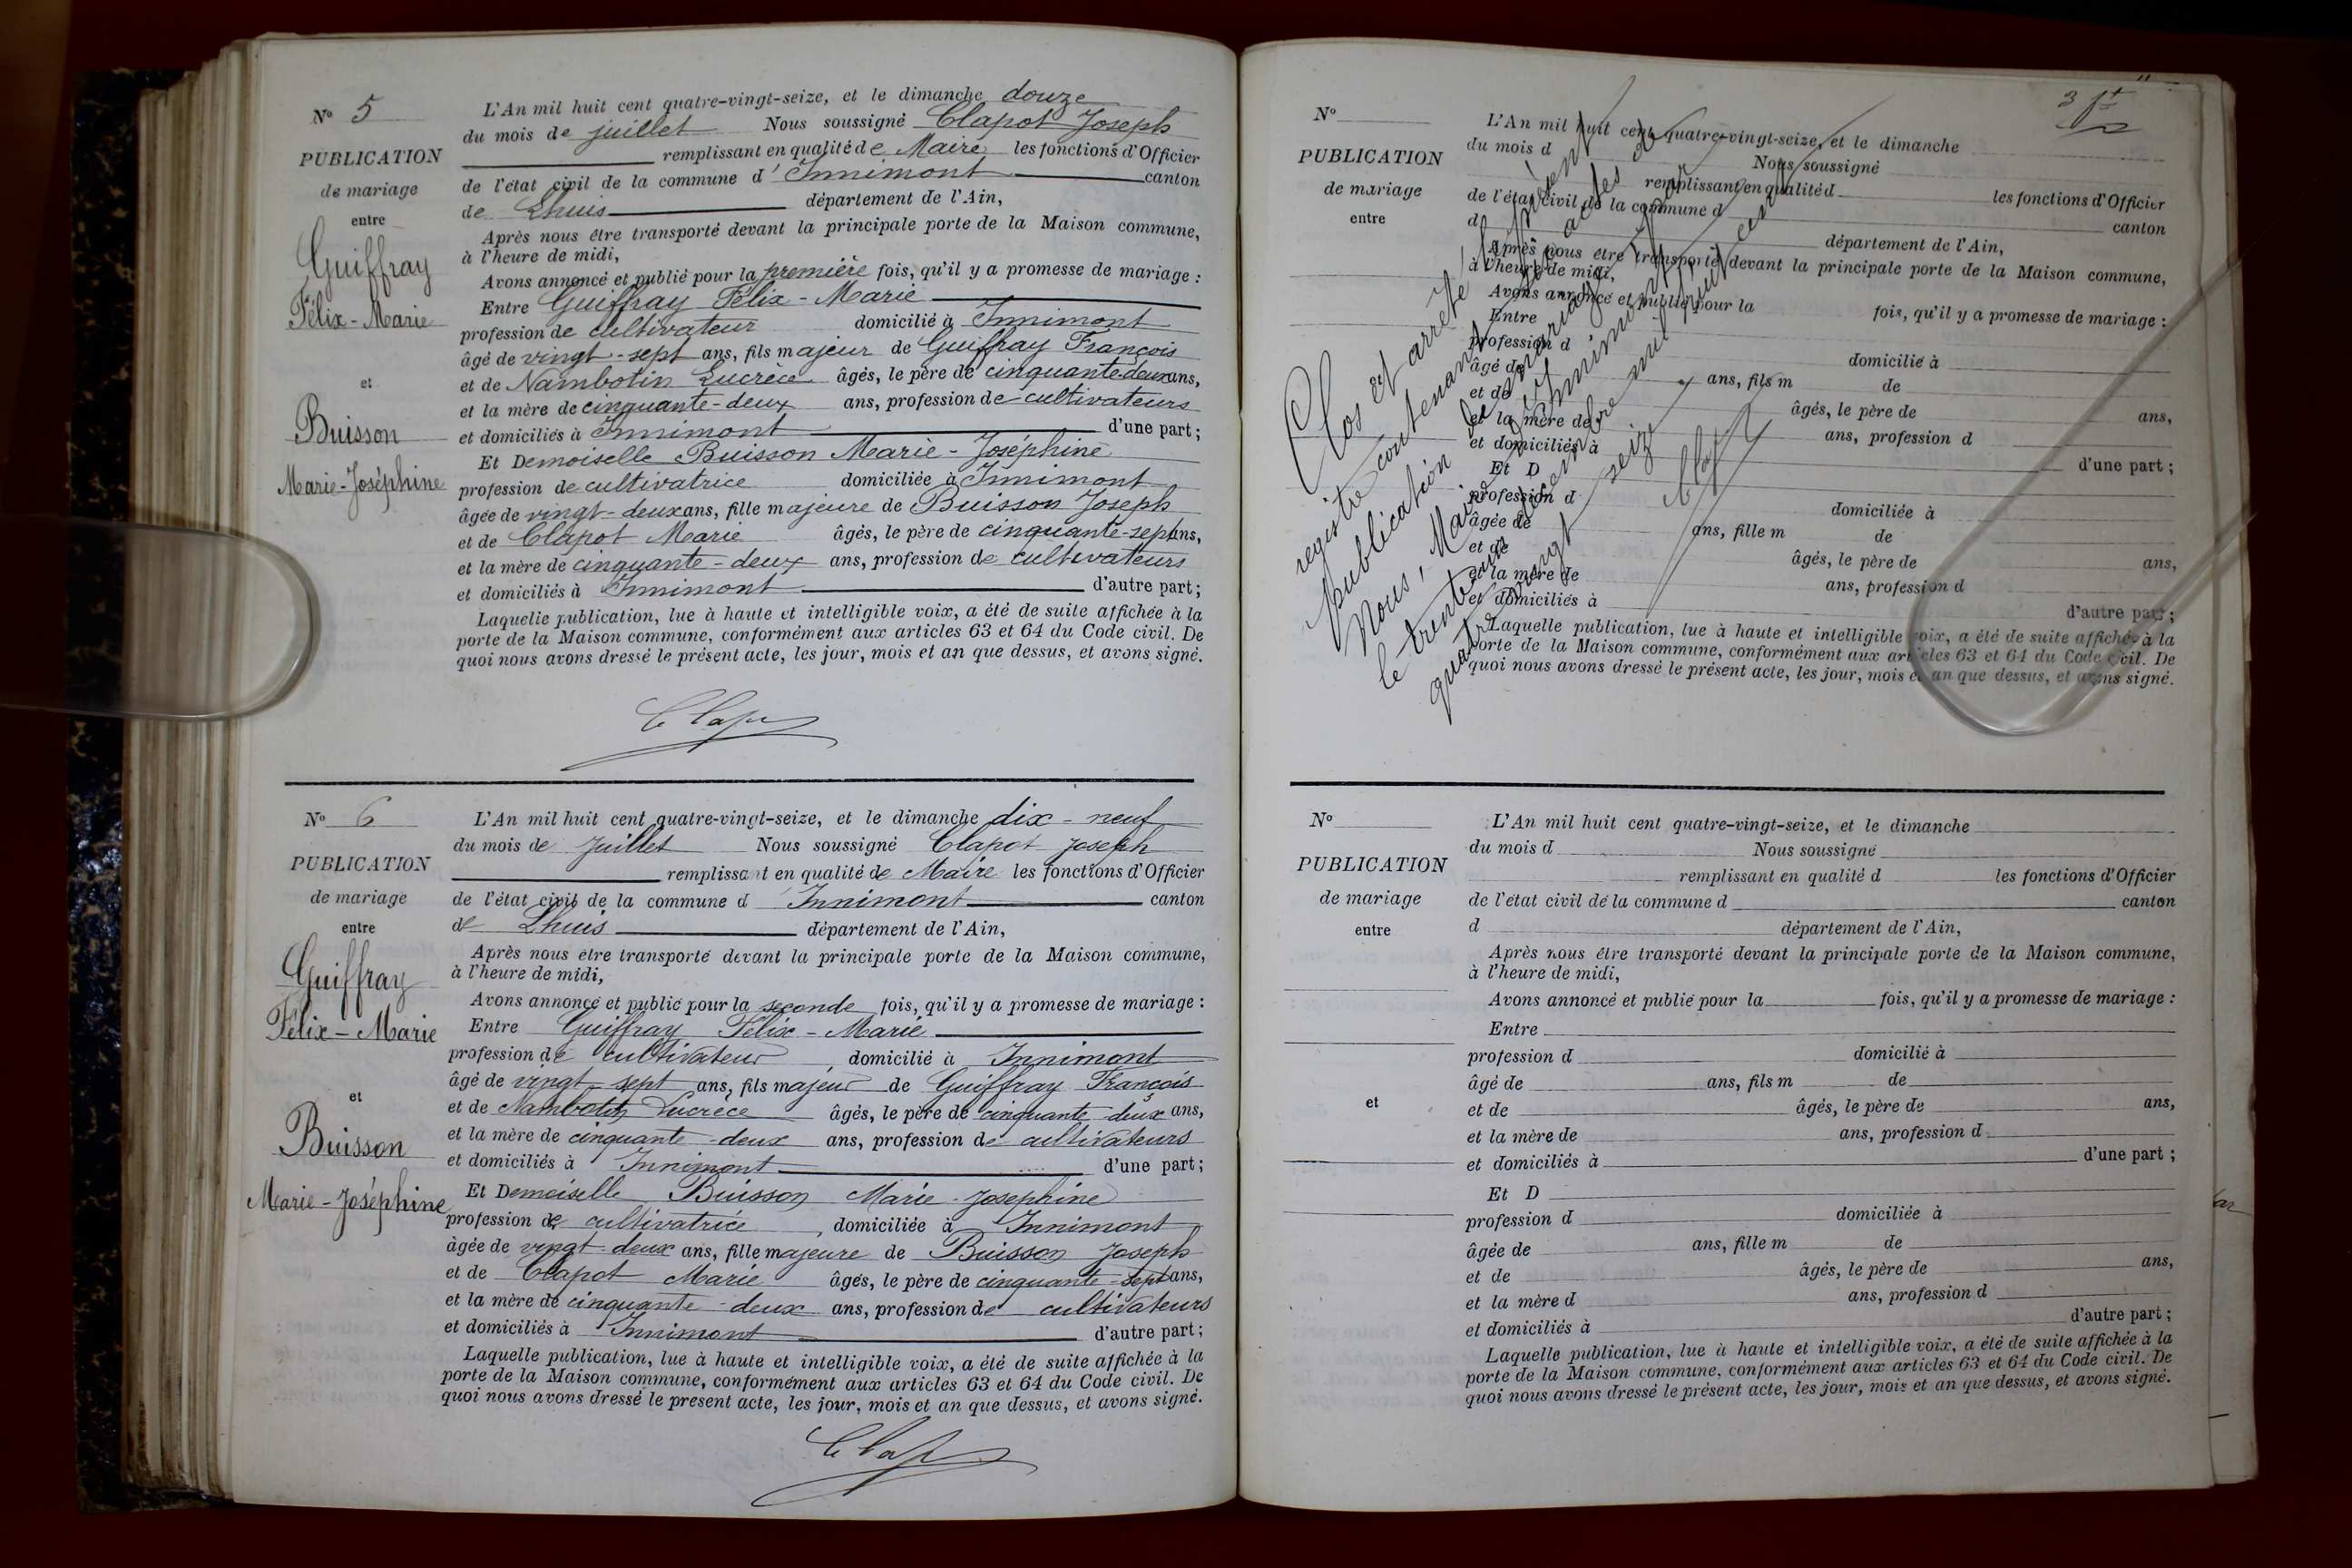 N° 5
PUBLICATION
de mariage
entre
Guiffray
Félix-Marie
et
Buisson
Marie-Joséphine
L'An mil huit cent quatre-vingt-seize, et le dimanche douze
du mois de juillet Nous soussigné Clapot Joseph
remplissant en qualité de Maire les fonctions d'Officier
de l'état civil de la commune d'Innimont canton
de Lhuis département de l'Ain,
Après nous être transporté devant la principale porte de la Maison commune,
à l'heure de midi,
Avons annoncé et publié pour la première fois, qu'il y a promesse de mariage :
Entre Guiffray Félix-Marie
profession de cultivateur domicilié à Innimont
âgé de vingt-sept ans, fils majeur de Guiffray François
et de Nambotin Lucrèce âgés, le père de cinquante-deux ans,
et la mère de cinquante-deux ans, profession de cultivateurs
et domiciliés à Innimont d'une part ;
Et Demoiselle Buisson Marie-Joséphine
profession de cultivatrice domiciliée à Innimont
âgée de vingt-deux ans, fille majeure de Buisson Joseph
et de Clapot Marie âgés, le père de cinquante-sept ans,
et la mère de cinquante-deux ans, profession de cultivateurs
et domiciliés à Innimont d'autre part ;
Laquelle publication, lue à haute et intelligible voix, a été de suite affichée à la
porte de la Maison commune, conformément aux articles 63 et 64 du Code civil. De
quoi nous avons dressé le présent acte, les jour, mois et an que dessus, et avons signé.
N° 6
PUBLICATION
de mariage
entre
Guiffray
Félix-Marie
et
Buisson
Marie-Joséphine
L'An mil huit cent quatre-vingt-seize, et le dimanche dix-neuf
du mois de juillet Nous soussigné Clapot Joseph
remplissant en qualité de Maire les fonctions d'Officier
de l'état civil de la commune d'Innimont canton
de Lhuis département de l'Ain,
Après nous être transporté devant la principale porte de la Maison commune,
à l'heure de midi,
Avons annoncé et publié pour la seconde fois, qu'il y a promesse de mariage :
Entre Guiffray Félix-Marie
profession de cultivateur, domicilié à Innimont
âgé de vingt-sept ans, fils majeur de Guiffray François
et de Nambotin Lucrèce âgés, le père de cinquante-deux ans,
et la mère de cinquante-deux ans, profession de cultivateurs
et domiciliés à Innimont d'une part ;
Et Demoiselle Buisson Marie-Josephine
profession de cultivatrice, domiciliée à Innimont
âgée de vingt-deux ans, fille majeure de Buisson Joseph
et de Clapot Marie âgés, le père de cinquante-sept ans,
et la mère de cinquante-deux ans, profession de cultivateurs
et domiciliés à Innimont d'autre part ;
Laquelle publication, lue à haute et intelligible voix, a été de suite affichée à la
porte de la Maison commune, conformément aux articles 63 et 64 du Code civil. De
quoi nous avons dressé le present acte, les jour, mois et an que dessus, et avons signé.
N°
PUBLICATION
de mariage
entre
L'An mil huit cent quatre-vingt-seize, et le dimanche
du mois d Nous soussigné
remplissant en qualité d les fonctions d'Officier
de l'état civil de la commune d canton
d département de l'Ain,
Après nous être transporté devant la principale porte de la Maison commune,
à l'heure de midi,
Avons annoncé et publié pour la fois, qu'il y a promesse de mariage :
Entre
profession d domicilié à
âgé de ans, fils m de
et de âgés, le père de ans,
et la mère de ans, profession d
et domiciliés à d'une part ;
Et D
profession d domiciliée à
âgée de ans, fille m de
et de âgés, le père de ans,
et la mère de ans, profession d
et domiciliés à d'autre part ;
Laquelle publication, lue à haute et intelligible voix, a été de suite affichée à la
porte de la Maison commune, conformément aux articles 63 et 64 du Code civil. De
quoi nous avons dressé le présent acte, les jour, mois et an que dessus, et avons signé.
Clos et arrêté le présent
registre contenant actes de
publication de mariage par
Nous, Maire d'Innimont
le trente un décembre mil huit cent
quatre vingt seize
N°
PUBLICATION
de mariage
entre
et
L'An mil huit cent quatre-vingt-seize, et le dimanche
du mois d Nous soussigné
remplissant en qualité d les fonctions d'Officier
de l'état civil de la commune d canton
d département de l'Ain,
Après nous être transporté devant la principale porte de la Maison commune,
à l'heure de midi,
Avons annoncé et publié pour la fois, qu'il y a promesse de mariage :
Entre
profession d domicilié à
âgé de ans, fils m de
et de âgés, le père de ans,
et la mère de ans, profession d
et domiciliés à d'une part ;
Et D
profession d domiciliée à
âgée de ans, fille m de
et de âgés, le père de ans,
et la mère d ans, profession d
et domiciliés à d'autre part ;
Laquelle publication, lue à haute et intelligible voix, a été de suite affichée à la
porte de la Maison commune, conformément aux articles 63 et 64 du Code civil. De
quoi nous avons dressé le présent acte, les jour, mois et an que dessus, et avons signé.